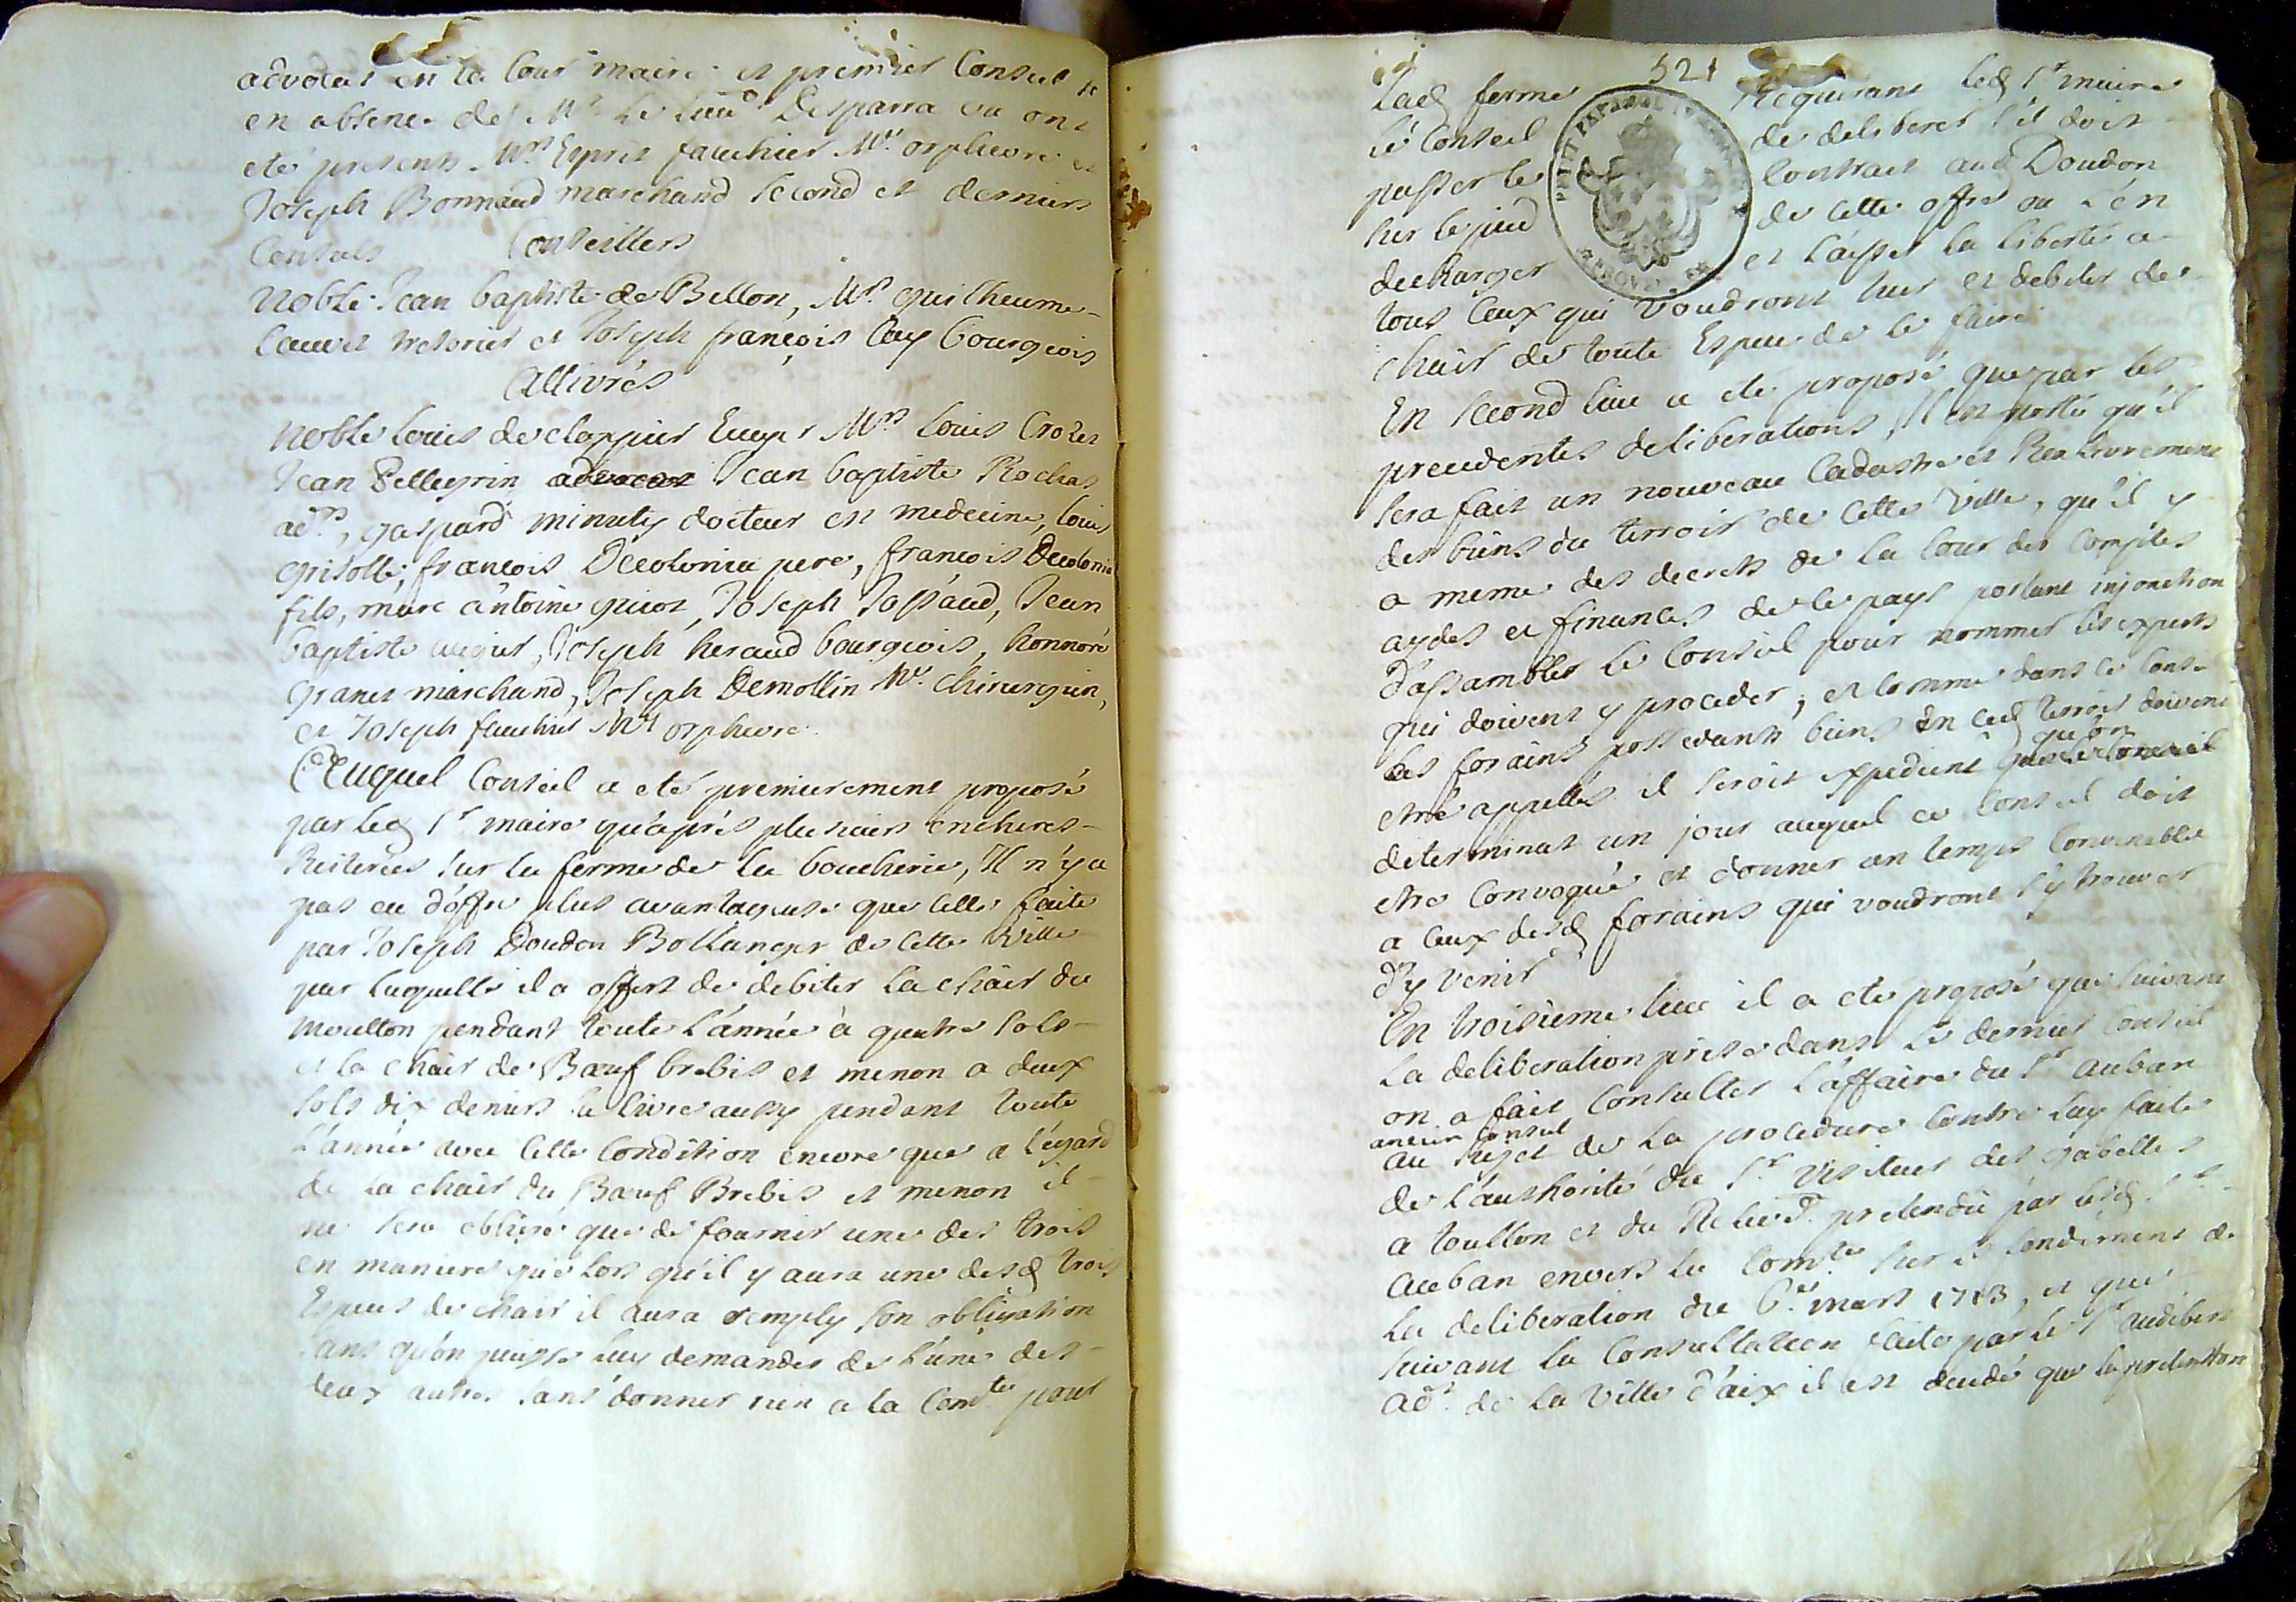 advocat en la Cour maire et premier Consul
en absence de Mr. le lieud. Desparra ou ont
eté presents Mrs Esprit fauchier Me. orphevre et
Joseph Bonnaud marchand second et derniers
Consuls
Conseillers
Noble Jean baptiste de Bellon, Mrs. guilheume
Cauvet tresorier et Joseph françois Cay bourgeois
Allivrés
Noble Louis de clappier Mrs Louis Crozet
Jean Pellegrin Jean baptiste Rochas
adts, gaspard minuty docteur en medecine, Louis
grisolle, francois Decolonia pere, francois Decolonia
fils, marc antoine guiot, Joseph Jassaud, Jean
baptiste augier, Joseph heraud bourgeois, honnoré
granet marchand, Joseph Demollin Me. Chirurgien,
et Joseph fauchier Me orphevre
Auquel Conseil a eté premierement proposé
par led Sr maire qu'aprés plusieurs encheres
Reiterées sur la ferme de la boucherie, Il n'y a
pas eu d'offre plus avantageuse que celle faite
par Joseph Doudon Bollanger de cette Ville
par laquelle il a offert de debiter la chair du
moutton pendant toute l'année à quatre sols
et la chair de Bœuf brebis et menon a deux
sols dix deniers la livre aussy pendant toute
L'année avec cette condition encore que a l'egard
de la chair du Bœuf Brebis et menon il
ne sera obligé que de fournir une des trois
en maniere que Lors qu'il y aura une desd trois
Especes de chair il aura remply son obligation
sans qu'on puisse luy demander de L'une des
deux autres sans donner rien a la Comté pour
521
Lad ferme Requerant led Sr maire
le Conseil de deliberer s'il doit
passer le Contract aud Doudon
sur le pied de cette offre ou l'en
decharger et laisser la liberté a
tous ceux qui voudront tuer et debiter de
chair de toute Espece de le faire
En second lieu a eté proposé que par les
precedentes deliberations, Il est porté qu'il
sera fait un nouveau Cadastre et
des biens du terroir de cette Ville, qu'il y
a meme des decrets de la Cour des Comptes
aydes et finances de ce pays portant injonction
D'assambler le Conseil pour nommer les experts
qui doivent y proceder, et comme dans ce Conseil
Les forains possedants biens en ced terroir doivent
qu'on
etre appellés il seroit expedient que le Conseil
determinat un jour auquel ce Conseil doit
etre Convoqué et donner un temps Convenable
a ceux desd forains qui voudront s'y trouver
D'y venir
En troisieme lieu il a eté proposé que suivant
La deliberation prise dans le dernier Conseil
on a fait Consulter L'affaire du Sr auban
ancien Consul
au sujet de La procedure Contre luy faite
de L'authorité du Sr. Visiteur des gabelles
a toullon et du pretendu par led Sr
auban envers la Comté sur le fondement de
La deliberation du 6e. mars 1713, et que
suivant la Consultation faite par le Sr audibert
adt. de la Ville d'aix il est decidé que la pretention